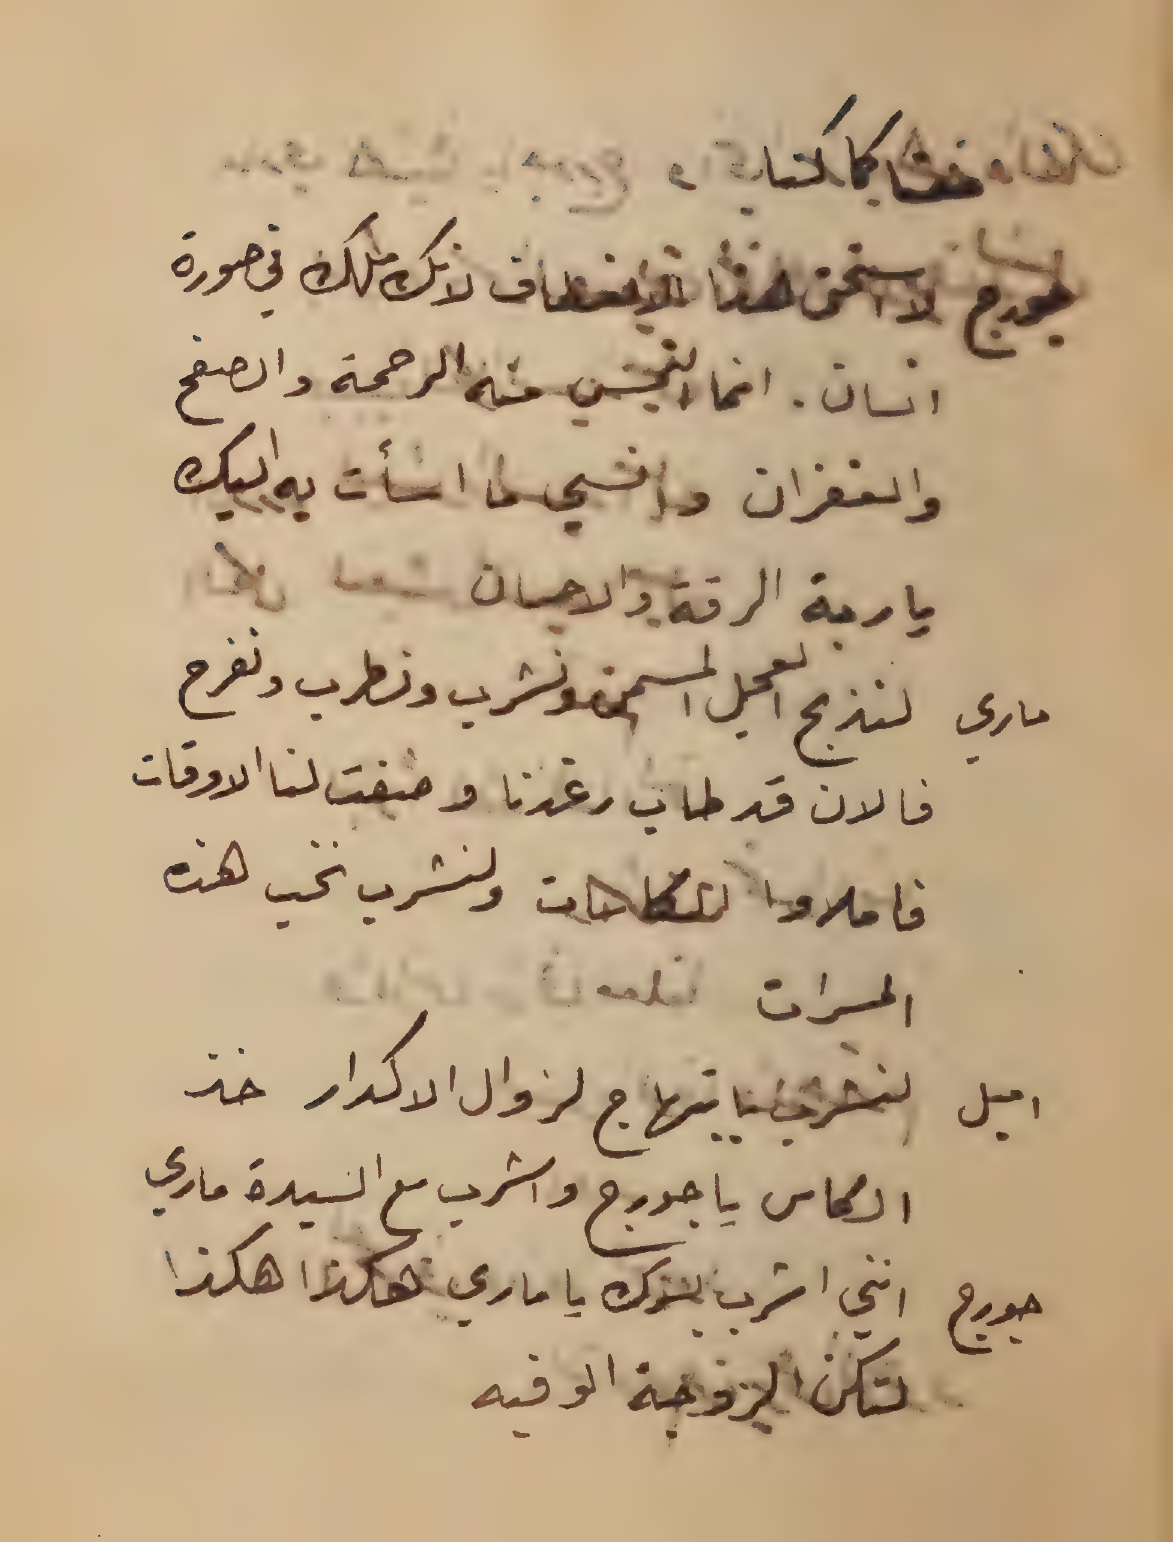 كما كنا
جورج لا استحق هذا الانعطاف لانك ملك في صورة
انسان. انما التمس منك الرحمة والصفح
والغفران وانسي ما اسأت به اليك
يا ربة الرقة والاحسان
ماري لنذبح العجل المسمن ونشرب ونطرب ونفرح
فالان قد طاب رغدنا وصفت لنا الاوقات
فاملاوا الكاسات ولنشرب نخب هذه
المسرات
اميل لنشرب بابتهاج لزوال الاكدار خذ
الكاس يا جورج واشرب مع السيدة ماري
جورج انني اشرب بسرك يا ماري هكذا هكذا
لتكن الزوجة الوفيه